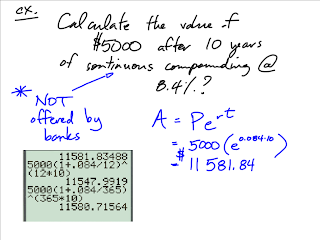 ex.
Calculate the value of
$5000 after 10 years
of continuous compounding @
8.4%.?
* NOT
offered by
banks
A = Pe^rt
= 5000(e^0.084·10)
= $11 581.84
11581.83488
5000(1+.084/12)^
(12*10)
11547.9919
5000(1+.084/365)
^(365*10)
11580.71564